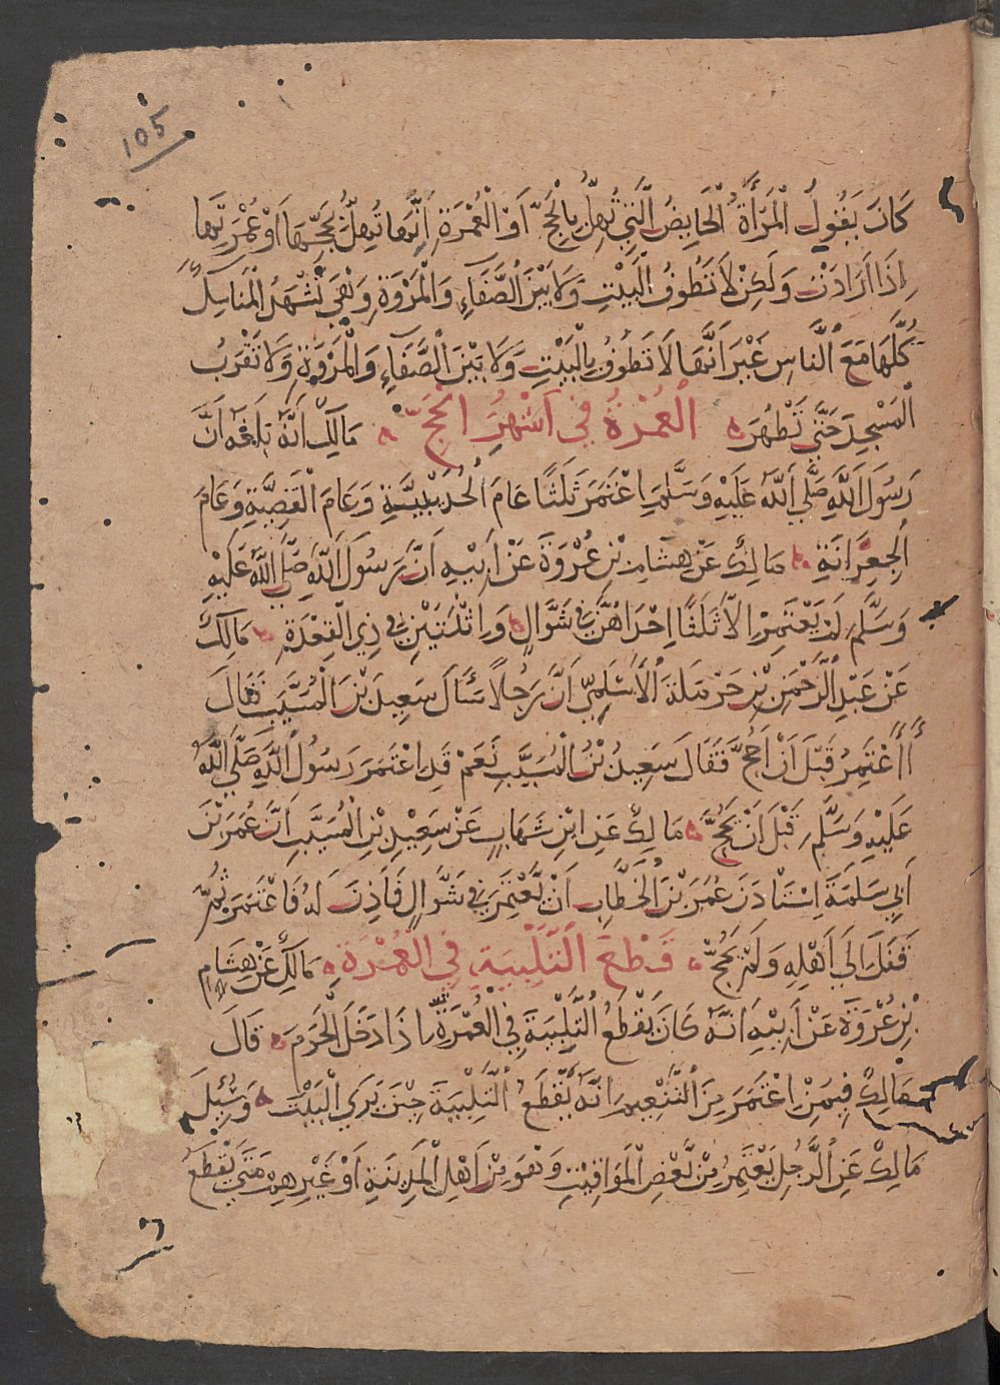 105
كَانَ يَقُولُ الْمَرْأَةُ الْحَايِضُ الَّتِي تُهِلُّ بِالْحَجِّ أَوْ الْعُمْرَةِ إِنَّهَا تُهِلُّ بِحَجِّهَا أَوْ عُمْرَتِهَا
إِذَا أَرَادَتْ وَلَكِنْ لَا تَطُوفُ الْبَيْتِ وَلَا بَيْنَ الصَّفَاءِ وَالْمَرْوَةِ وَهِيَ تَشْهَدُ الْمَنَاسِكَ
كُلَّهَا مَعَ النَّاسِ غَيْرَ أَنَّهَا لَا تَطُوفُ بِالْبَيْتِ وَلَا بَيْنَ الصَّفَاءِ وَالْمَرْوَةِ وَلَا تَقْرَبُ
الْمَسْجِدَ حَتَّى تَطْهُرَ الْعُمْرَةُ فِي أَشْهُرِ الْحَجِّ مَالِكٌ أَنَّهُ بَلَغَهُ أَنَّ
رَسُولَ اللَّهِ صَلَّى اللَّهُ عَلَيْهِ وَسَلَّمَ اعْتَمَرَ ثَلَثًا عَامَ الْحُدَيْبِيَّةِ وَعَامَ الْقَضِيَّةِ وَعَامَ
الْجِعِرَّانَةِ مَالِكٌ عَنْ هِشَامِ بْنِ عُرْوَةَ عَنْ أَبِيهِ أَنَّ رَسُولَ اللَّهِ صَلَّى اللَّهُ عَلَيْهِ
وَسَلَّمَ لَمْ يَعْتَمِرْ الَّا ثَلَثًا إِحْدَاهُنَّ فِي شَوَّالٍ وَاثْنَتَيْنِ فِي ذِي الْقِعْدَةِ مَالِكٌ
عَنْ عَبْدِ الرَّحْمَنِ بْنِ حَرْمَلَةَ الْأَسْلَمِيِّ أَنَّ رَجُلًا سَأَلَ سَعِيدَ بْنَ الْمُسَيَّبِ فَقَالَ
أَأَعْتَمِرُ قَبْلَ أَنْ أَحُجَّ فَقَالَ سَعِيدُ بْنُ الْمُسَيَّبِ نَعَمْ قَدِ اعْتَمَرَ رَسُولُ اللَّهِ صَلَّى اللَّهُ
عَلَيْهِ وَسَلَّمَ قَبْلَ أَنْ يَحُجَّ مَالِكٌ عَنِ ابْنِ شَهَابٍ عَنْ سَعِيدِ بْنِ الْمُسَيَّبِ أَنَّ عُمَرَ بْنَ
أَبِي سَلَمَةَ اسْتَأْذَنَ عُمَرَ بْنَ الْخَطَّابِ أَنْ يَّعْتَمِرَ فِي شَوَّالٍ فَأَذِنَ لَهُ فَاعْتَمَرَ ثُمَّ
قَفَلَ إِلَى أَهْلِهِ وَلَمْ يَحُجَّ قَطْعُ التَّلْبِيَةِ فِي الْعُمْرَةِ مَالِكٌ عَنْ هِشَامِ
بْنِ عُرْوَةَ عَنْ أَبِيهِ أَنَّهُ كَانَ يَقْطَعُ التَّلْبِيَةَ فِي الْعُمْرَةِ إِذَا دَخَلَ الْحَرَمَ قَالَ
مَالِكٌ فِيمَنْ اعْتَمَرَ مِنَ التَّنْعِيمِ أَنَّهُ يَقْطَعُ التَّلْبِيَةَ حِينَ يَرَى الْبَيْتَ وَسُئِلَ
مَالِكٌ عَنِ الرَّجُلِ يَعْتَمِرُ مِنْ بَعْضِ الْمَوَاقِيتِ وَهُوَ مِنْ أَهْلِ الْمَدِينَةِ أَوْ غَيْرِهِمْ مَتَى يَقْطَعُ